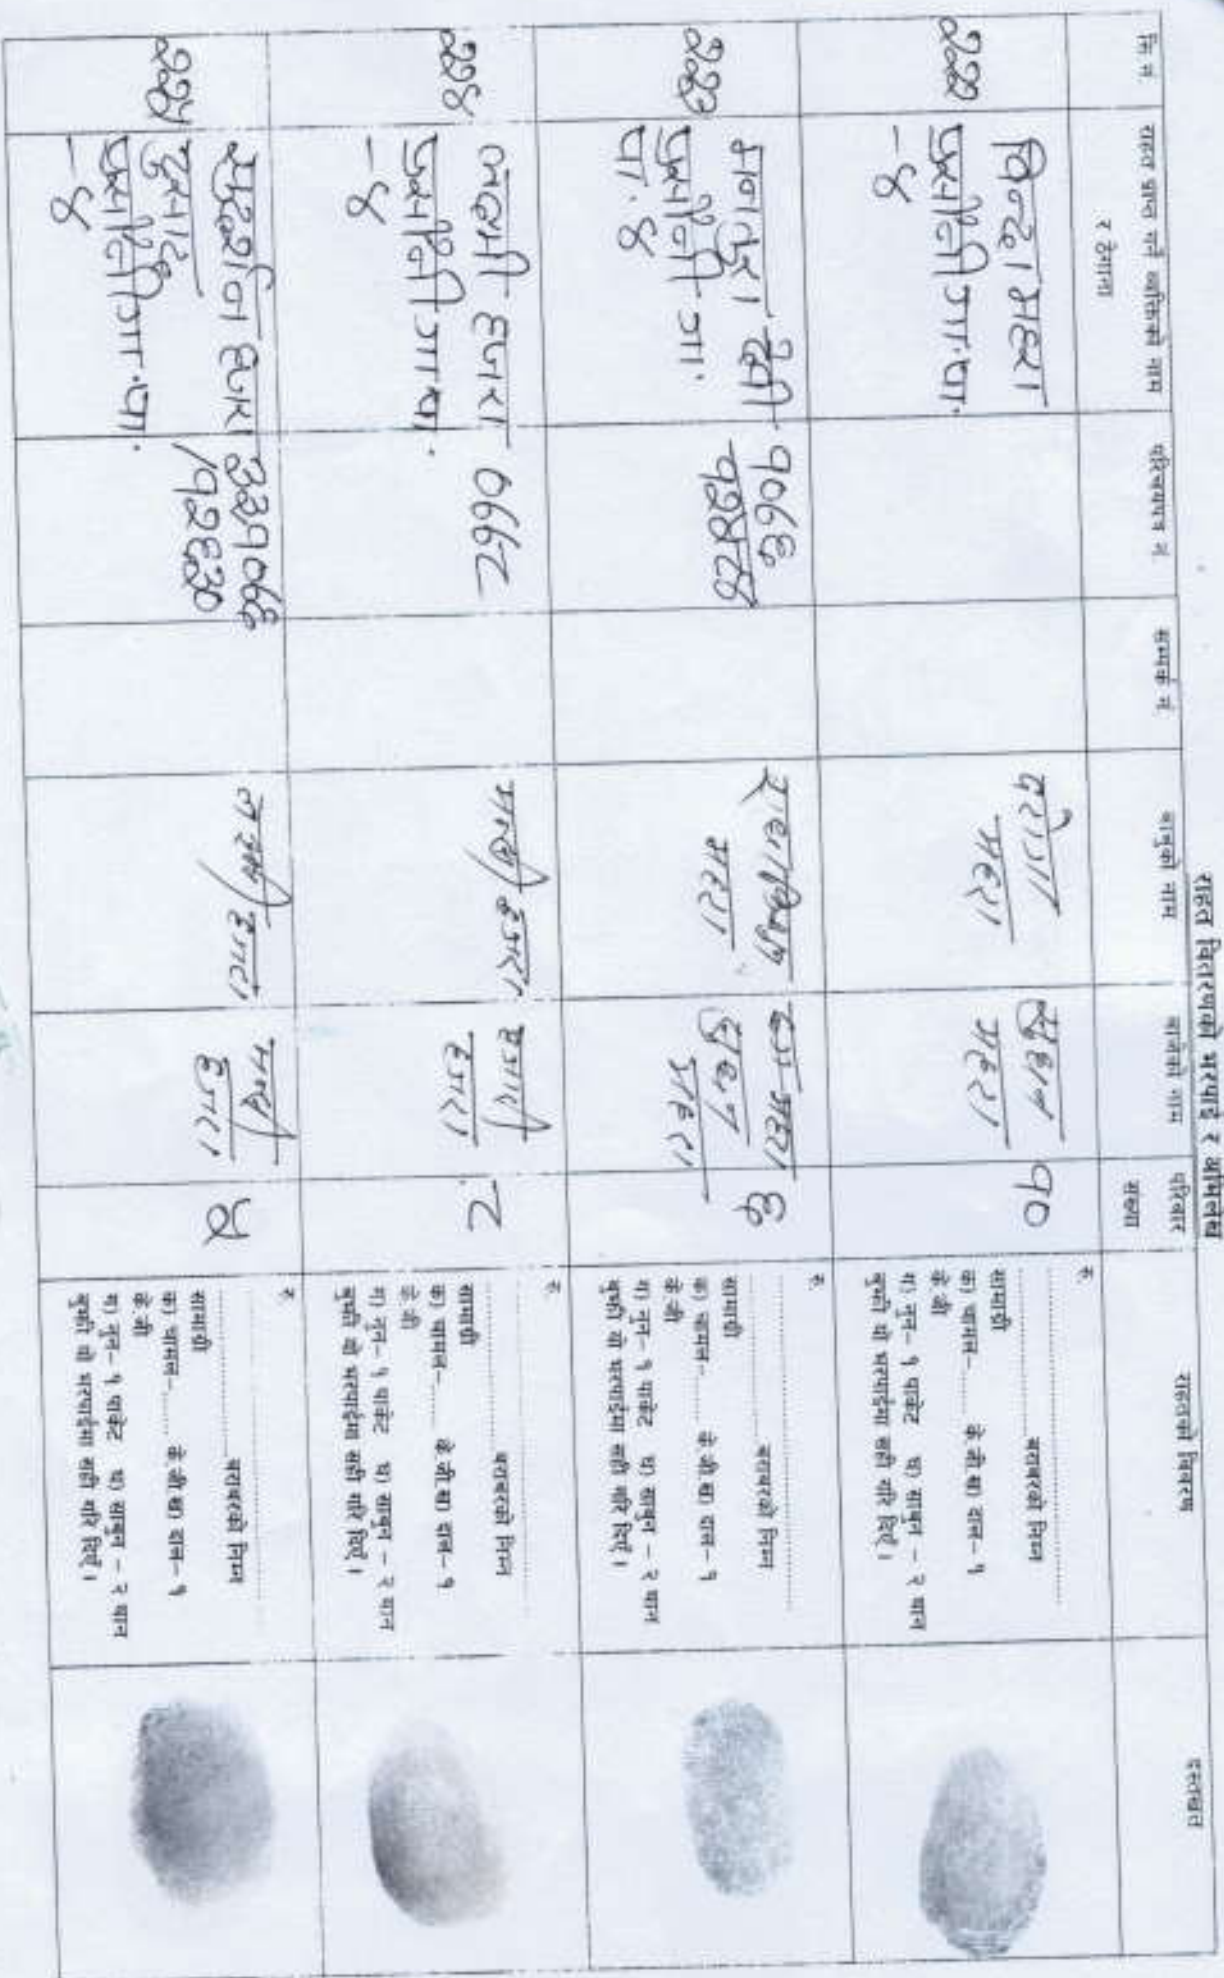 राहत वितरणको भरपाई र अभिलेख
सि.नं.
राहत प्राप्त गर्ने व्यक्तिको नाम
र ठेगाना
परिचयपत्र नं.
सम्पर्क नं.
बाबुको नाम
बाजेको नाम
परिवार
संख्या
राहतको विवरण
दस्तखत
२२२
विन्दा महरा
प्रसौनी गा.पा.
-४
दरोगा
महरा
महरा
१०
रु.
बराबरको निम्न
सामाग्री
क) चामल-....... के.जी ख) दाल- १
के.जी
ग) नुन- १ पाकेट घ) साबुन - २ थान
बुझी यो भरपाईमा सही गरि दिएँ ।
२२३
देवी
प्रसौनी गा.
पा. ४
१०७६
१२४८४
महरा
महरा
६
रु.
बराबरको निम्न
सामाग्री
क) चामल-....... के.जी ख) दाल- १
के.जी
ग) नुन- १ पाकेट घ) साबुन - २ थान
बुझी यो भरपाईमा सही गरि दिएँ ।
२२४
लक्ष्मी हजरा
प्रसौनी गा.पा.
-४
०७७८
हजरा
हजरा
८
रु.
बराबरको निम्न
सामाग्री
क) चामल-....... के.जी ख) दाल- १
के.जी
ग) नुन- १ पाकेट घ) साबुन - २ थान
बुझी यो भरपाईमा सही गरि दिएँ ।
२२५
सुदर्शन हजरा
दुसाद
प्रसौनी गा.पा.
-४
३३१०७६
/१२६३०
हजरा
हजरा
५
रु.
बराबरको निम्न
सामाग्री
क) चामल-....... के.जी ख) दाल- १
के.जी
ग) नुन- १ पाकेट घ) साबुन - २ थान
बुझी यो भरपाईमा सही गरि दिएँ ।